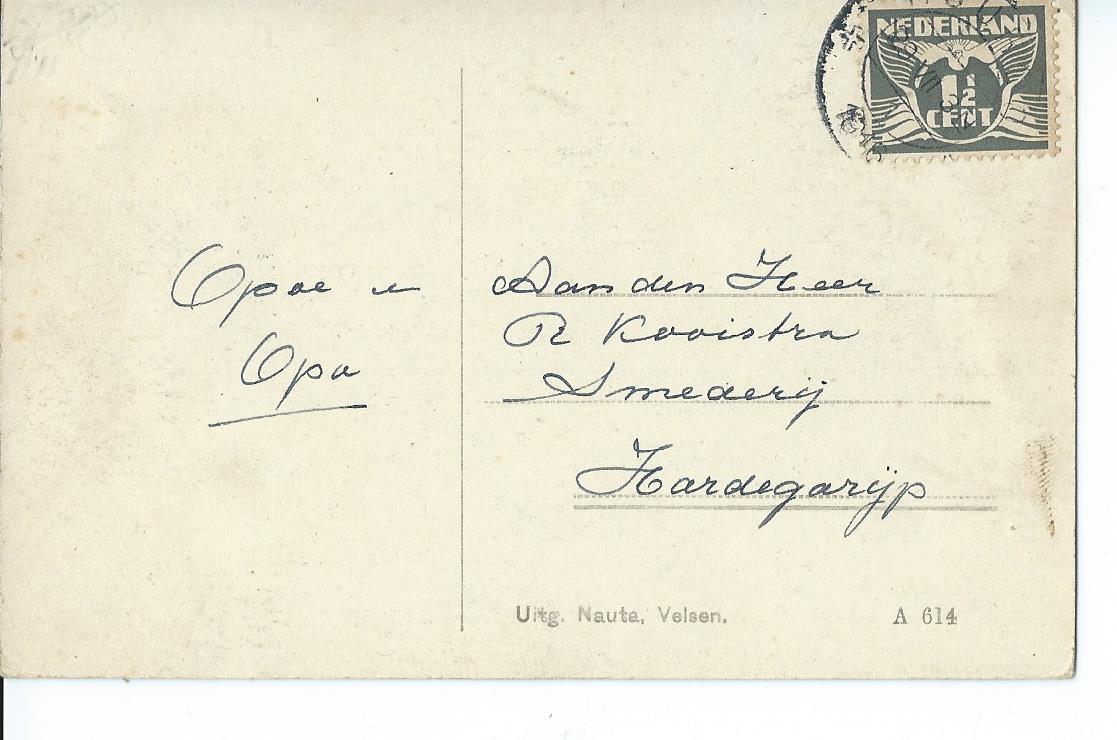 NEDERLAND
1½
CENT
Opoe en
Opa
Aan den Heer
R Kooistra
Smederij
Hardegarijp
Uitg. Nauta, Velsen.
A 614